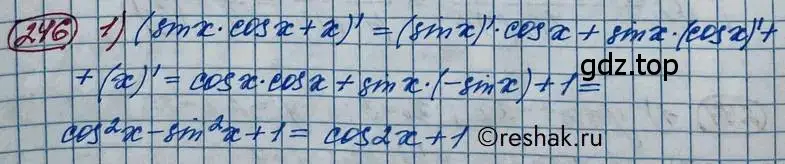 246 1) (sinx·cosx+x)' = (sinx)'·cosx + sinx·(cosx)'+
+(x)' = cosx·cosx + sinx·(-sinx)+1 =
gdz.top
cos²x-sin²x+1 = cos2x+1
©reshak.ru